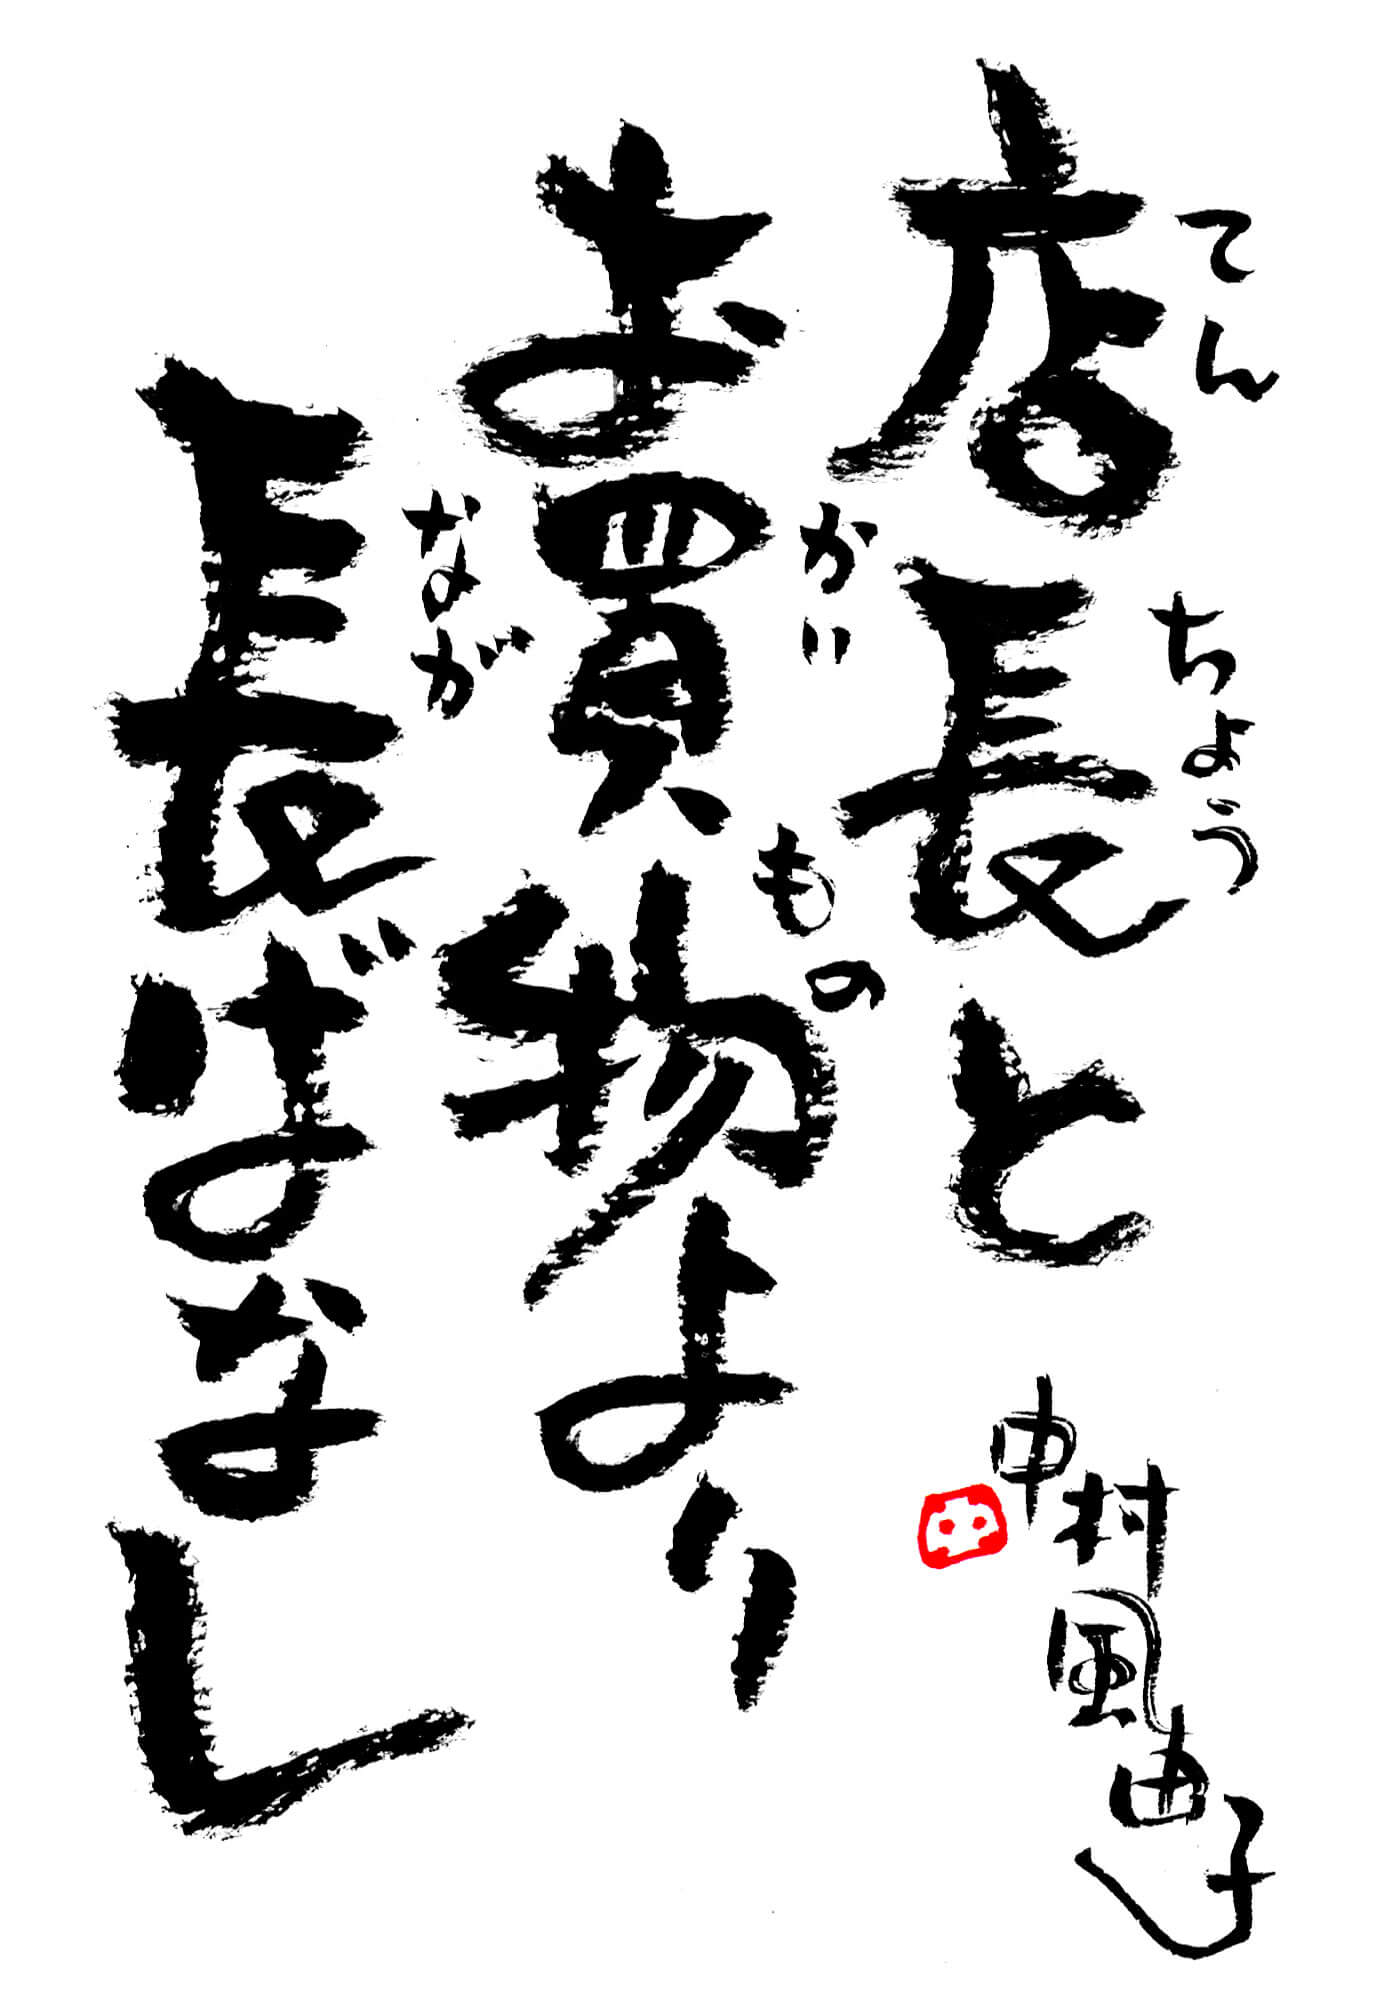 店長と
てんちょう
お買物より
かいもの
長ばなし
なが
中村風由子